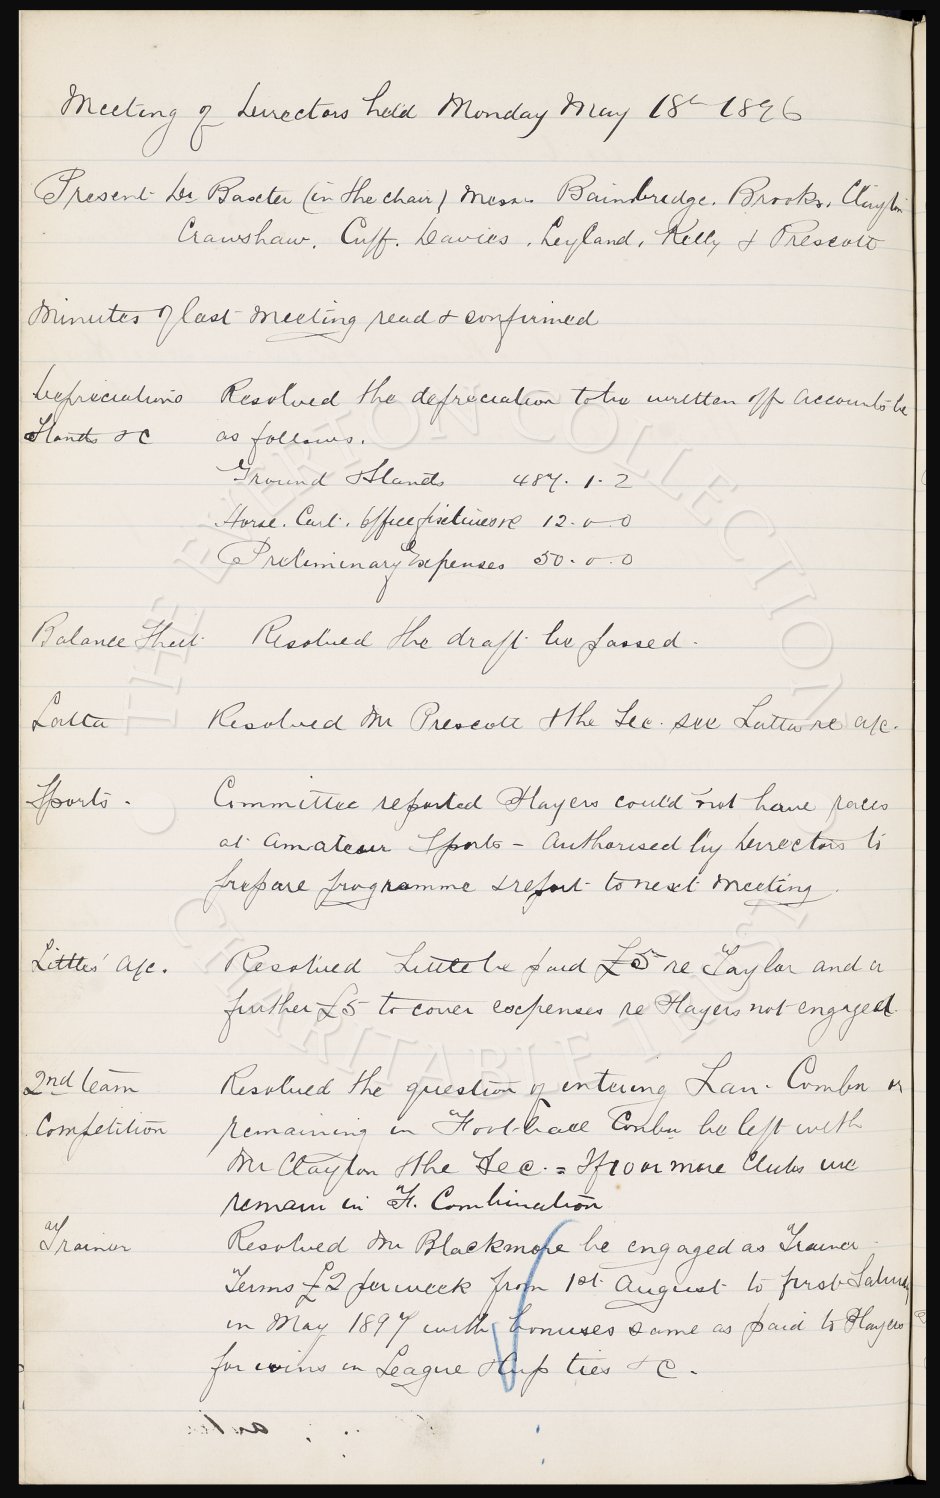 Meeting of Directors held Monday May 18th 1896
Present Dr Baxter (in the chair) Messrs Bainbridge. Brooks. Clayton
Crawshaw. Cuff. Davies. Leyland. Kelly & Prescott
Minutes of last meeting read & confirmed
Depreciations Resolved the depreciation to be written off accounts be
Stands &c as follows.
Ground & Stands 487. 1. 2
Horse. Cart. Office fixtures &c 12. 0. 0
Preliminary Expenses 50. 0. 0
Balance Sheet Resolved the draft be passed.
Latta Resolved Mr Prescott & the Sec. see Latta re a/c.
Sports. Committee reported Players could not have races
at amateur Sports - Authorised by Directors to
prepare programme & report to next meeting.
Littles' a/c. Resolved Little be paid £5 re Taylor and a
further £5 to cover expenses re Players not engaged.
2nd team Resolved the question of entering Lan. Combn or
Competition remaining in Football Combn be left with
Mr Clayton & the Sec. = If 10 or more Clubs we
remain in F. Combination
Trainer Resolved Mr Blackmore be engaged as Trainer
Terms £2 per week from 1st August to first Saturday
in May 1897 with bonuses same as paid to Players
for wins in League & Cup ties &c.
THE EVERTON COLLECTION
CHARITABLE TRUST